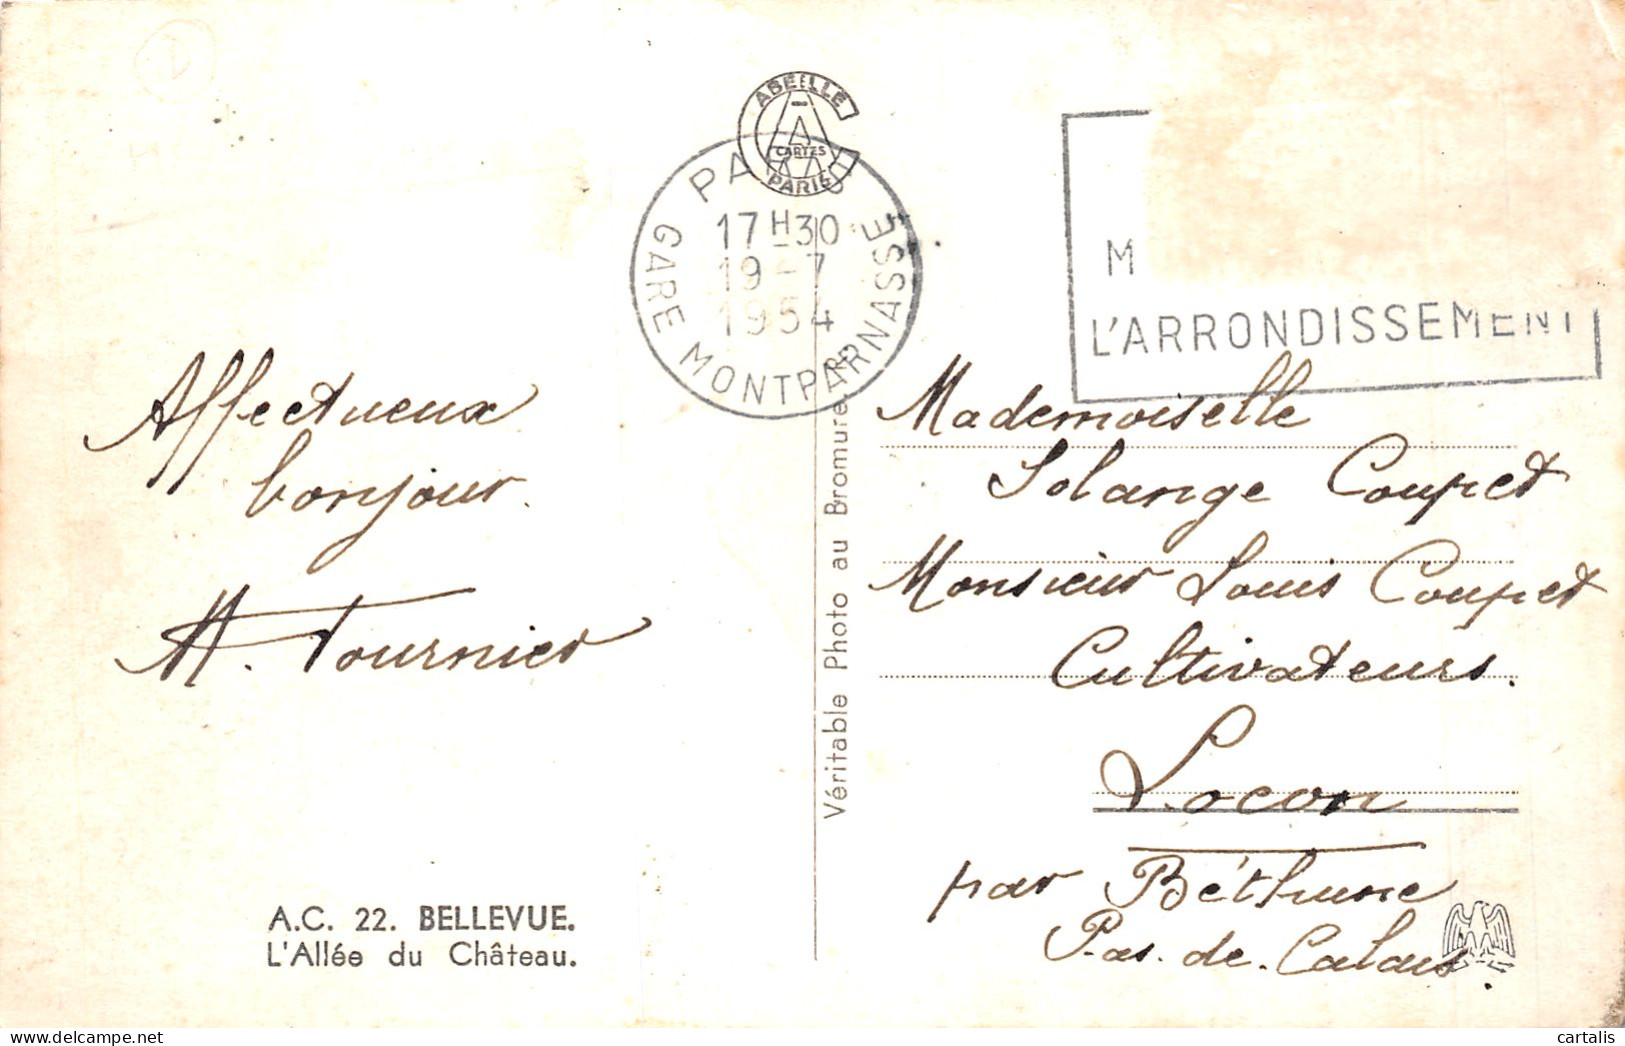 ABEILLE
CARTES
PARIS
PARIS
17H30
19-7
1954
GARE MONTPARNASSE
M
L'ARRONDISSEMENT
Affectueux
bonjour.
H. Tournier
A.C. 22. BELLEVUE.
L'Allée du Château.
Véritable Photo au Bromure.
Mademoiselle
Solange Coupet
Monsieur Louis Coupet
Cultivateurs.
Locon
par Béthune
Pas. de. Calais.
cartalis